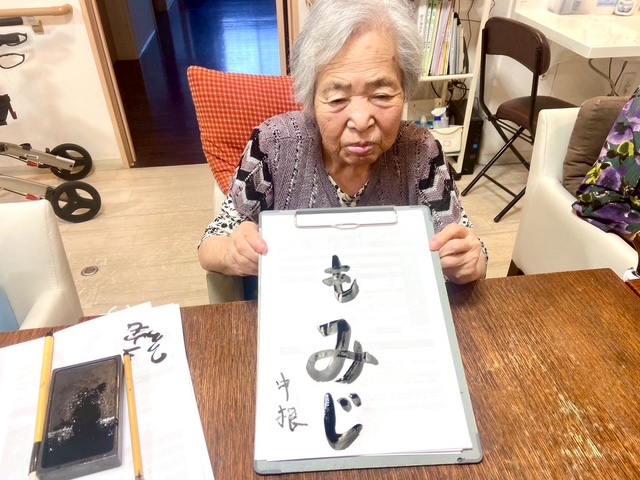 もみじ
中根